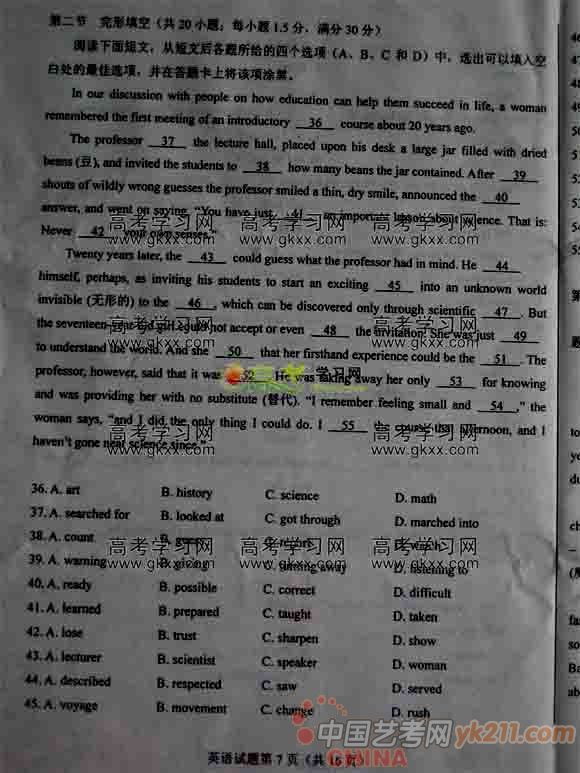 第二节 完形填空（共20小题；每小题1.5分，满分30分）
阅读下面短文，从短文后各题所给的四个选项（A、B、C和D）中，选出可以填入空
白处的最佳选项，并在答题卡上将该项涂黑。
In our discussion with people on how education can help them succeed in life, a woman
remembered the first meeting of an introductory 36 course about 20 years ago.
The professor 37 the lecture hall, placed upon his desk a large jar filled with dried
beans (豆), and invited the students to 38 how many beans the jar contained. After 39
shouts of wildly wrong guesses the professor smiled a thin, dry smile, announced the 40
answer, and went on saying, "You have just 41 an important lesson about science. That is:
Never 42 your own senses."
Twenty years later, the 43 could guess what the professor had in mind. He 44
himself, perhaps, as inviting his students to start an exciting 45 into an unknown world
invisible (无形的) to the 46 , which can be discovered only through scientific 47 . But
the seventeen-year-old girl could not accept or even 48 the invitation. She was just 49
to understand the world. And she 50 that her firsthand experience could be the 51 . The
professor, however, said that it was 52 . He was taking away her only 53 for knowing
and was providing her with no substitute (替代). "I remember feeling small and 54 ," the
woman says, "and I did the only thing I could do. I 55 the course that afternoon, and I
haven't gone near science since."
36. A. art B. history C. science D. math
37. A. searched for B. looked at C. got through D. marched into
38. A. count B. guess C. report D. watch
39. A. warning B. giving C. turning away D. listening to
40. A. ready B. possible C. correct D. difficult
41. A. learned B. prepared C. taught D. taken
42. A. lose B. trust C. sharpen D. show
43. A. lecturer B. scientist C. speaker D. woman
44. A. described B. respected C. saw D. served
45. A. voyage B. movement C. change D. rush
英语试题第7页（共16页）
高考学习网
www.gkxx.com
中国艺考网 yk211.com
CHINA